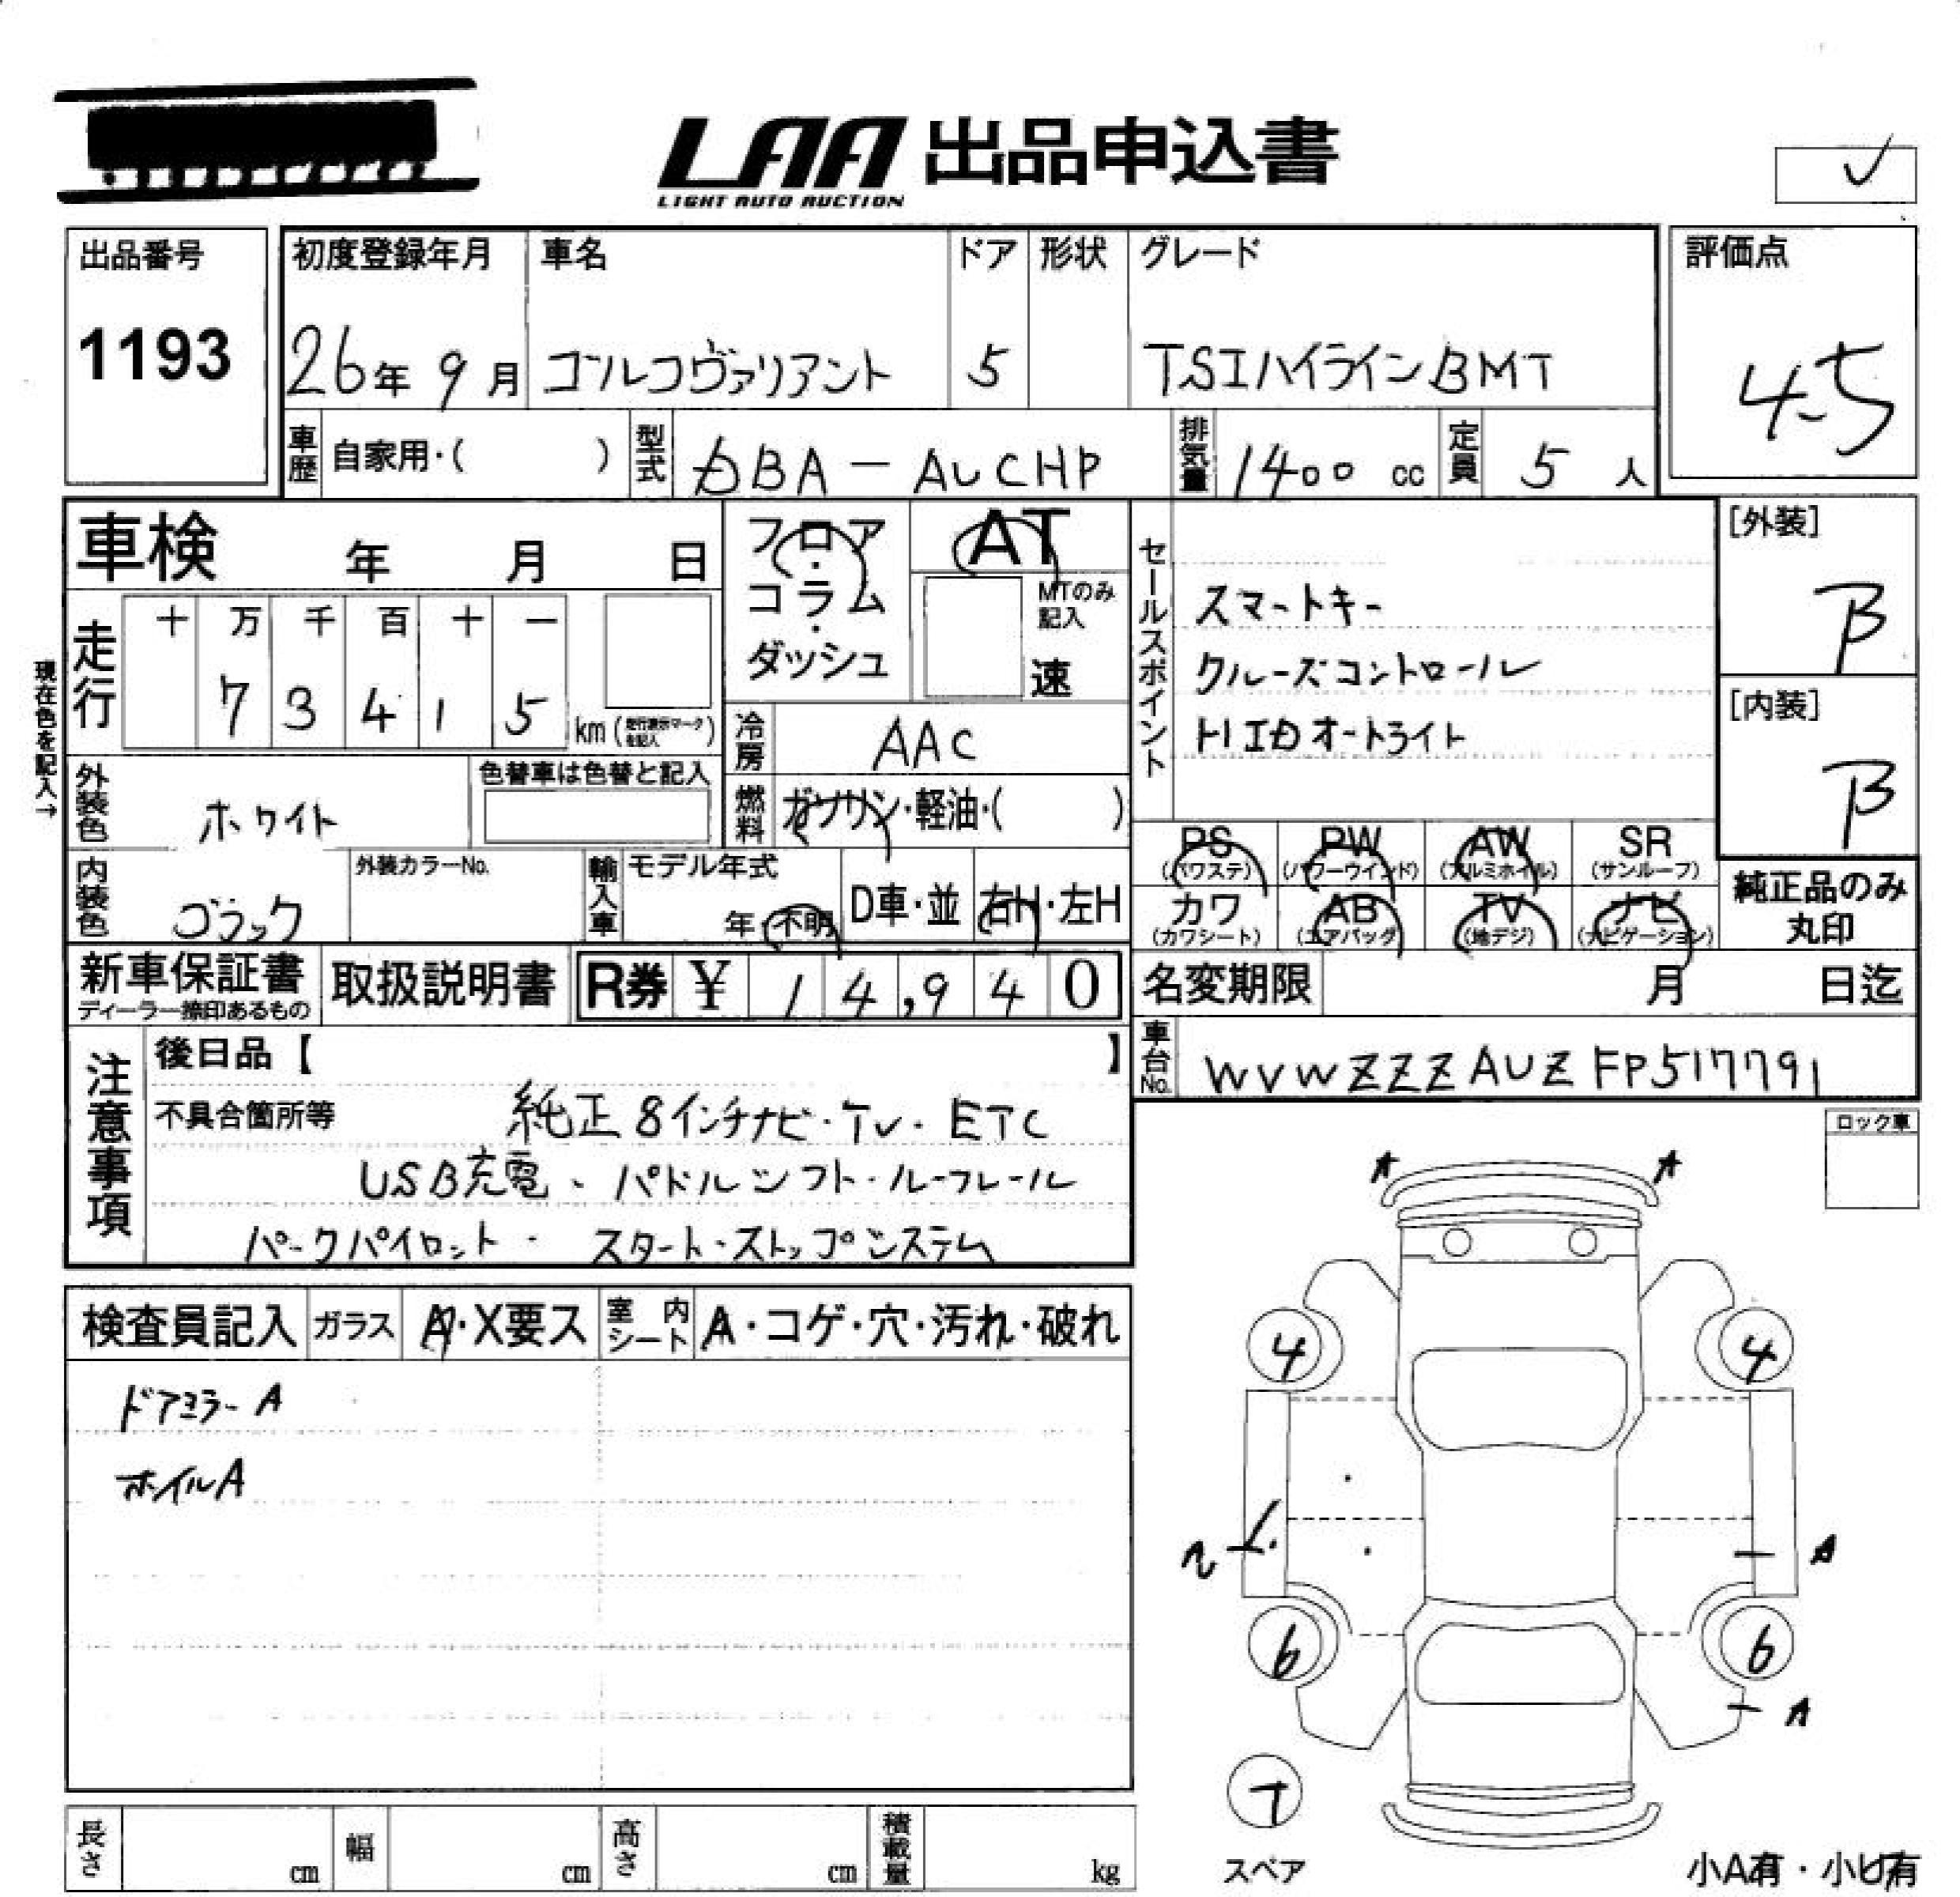 LAA 出品申込書
LIGHT AUTO AUCTION
出品番号
1193
初度登録年月 車名 ドア 形状 グレード
26年 9月 ゴルフヴァリアント 5 TSIハイラインBMT
評価点
4.5
車歴 自家用・( ) 型式 DBA-AUCHP 排気量 1400 cc 定員 5 人
車検 年 月 日
フロア・コラム・ダッシュ
AT
MTのみ記入
速
走行 十 万 千 百 十 一
7 3 4 1 5 km (走行表示マークを記入)
現在色を記入→
セールスポイント
スマートキー
クルーズコントロール
HIDオートライト
[外装]
B
[内装]
B
冷房 AAC
燃料 ガソリン・軽油・( )
外装色 ホワイト
色替車は色替と記入
内装色 ブラック
外装カラーNo.
輸入車 モデル年式
年・不明
D車・並 右H・左H
PS (パワステ) PW (パワーウインド) AW (アルミホイル) SR (サンルーフ)
カワ (カワシート) AB (エアバッグ) TV (地デジ) ナビ (ナビゲーション)
純正品のみ丸印
新車保証書
ディーラー捺印あるもの
取扱説明書
R券 ¥ 14,940
名変期限 月 日迄
車台No. WVWZZZAUZFP517791
注意事項
後日品【 】
不具合箇所等 純正8インチナビ・TV・ETC
USB充電・パドルシフト・ルーフレール
パークパイロット・ スタート・ストップシステム
ロック車
検査員記入 ガラス A・X要ス 室内シート A・コゲ・穴・汚れ・破れ
ドアミラーA
ホイルA
A A
4 4
A
6 6
A
T
スペア
小A有・小U有
長さ cm 幅 cm 高さ cm 積載量 kg